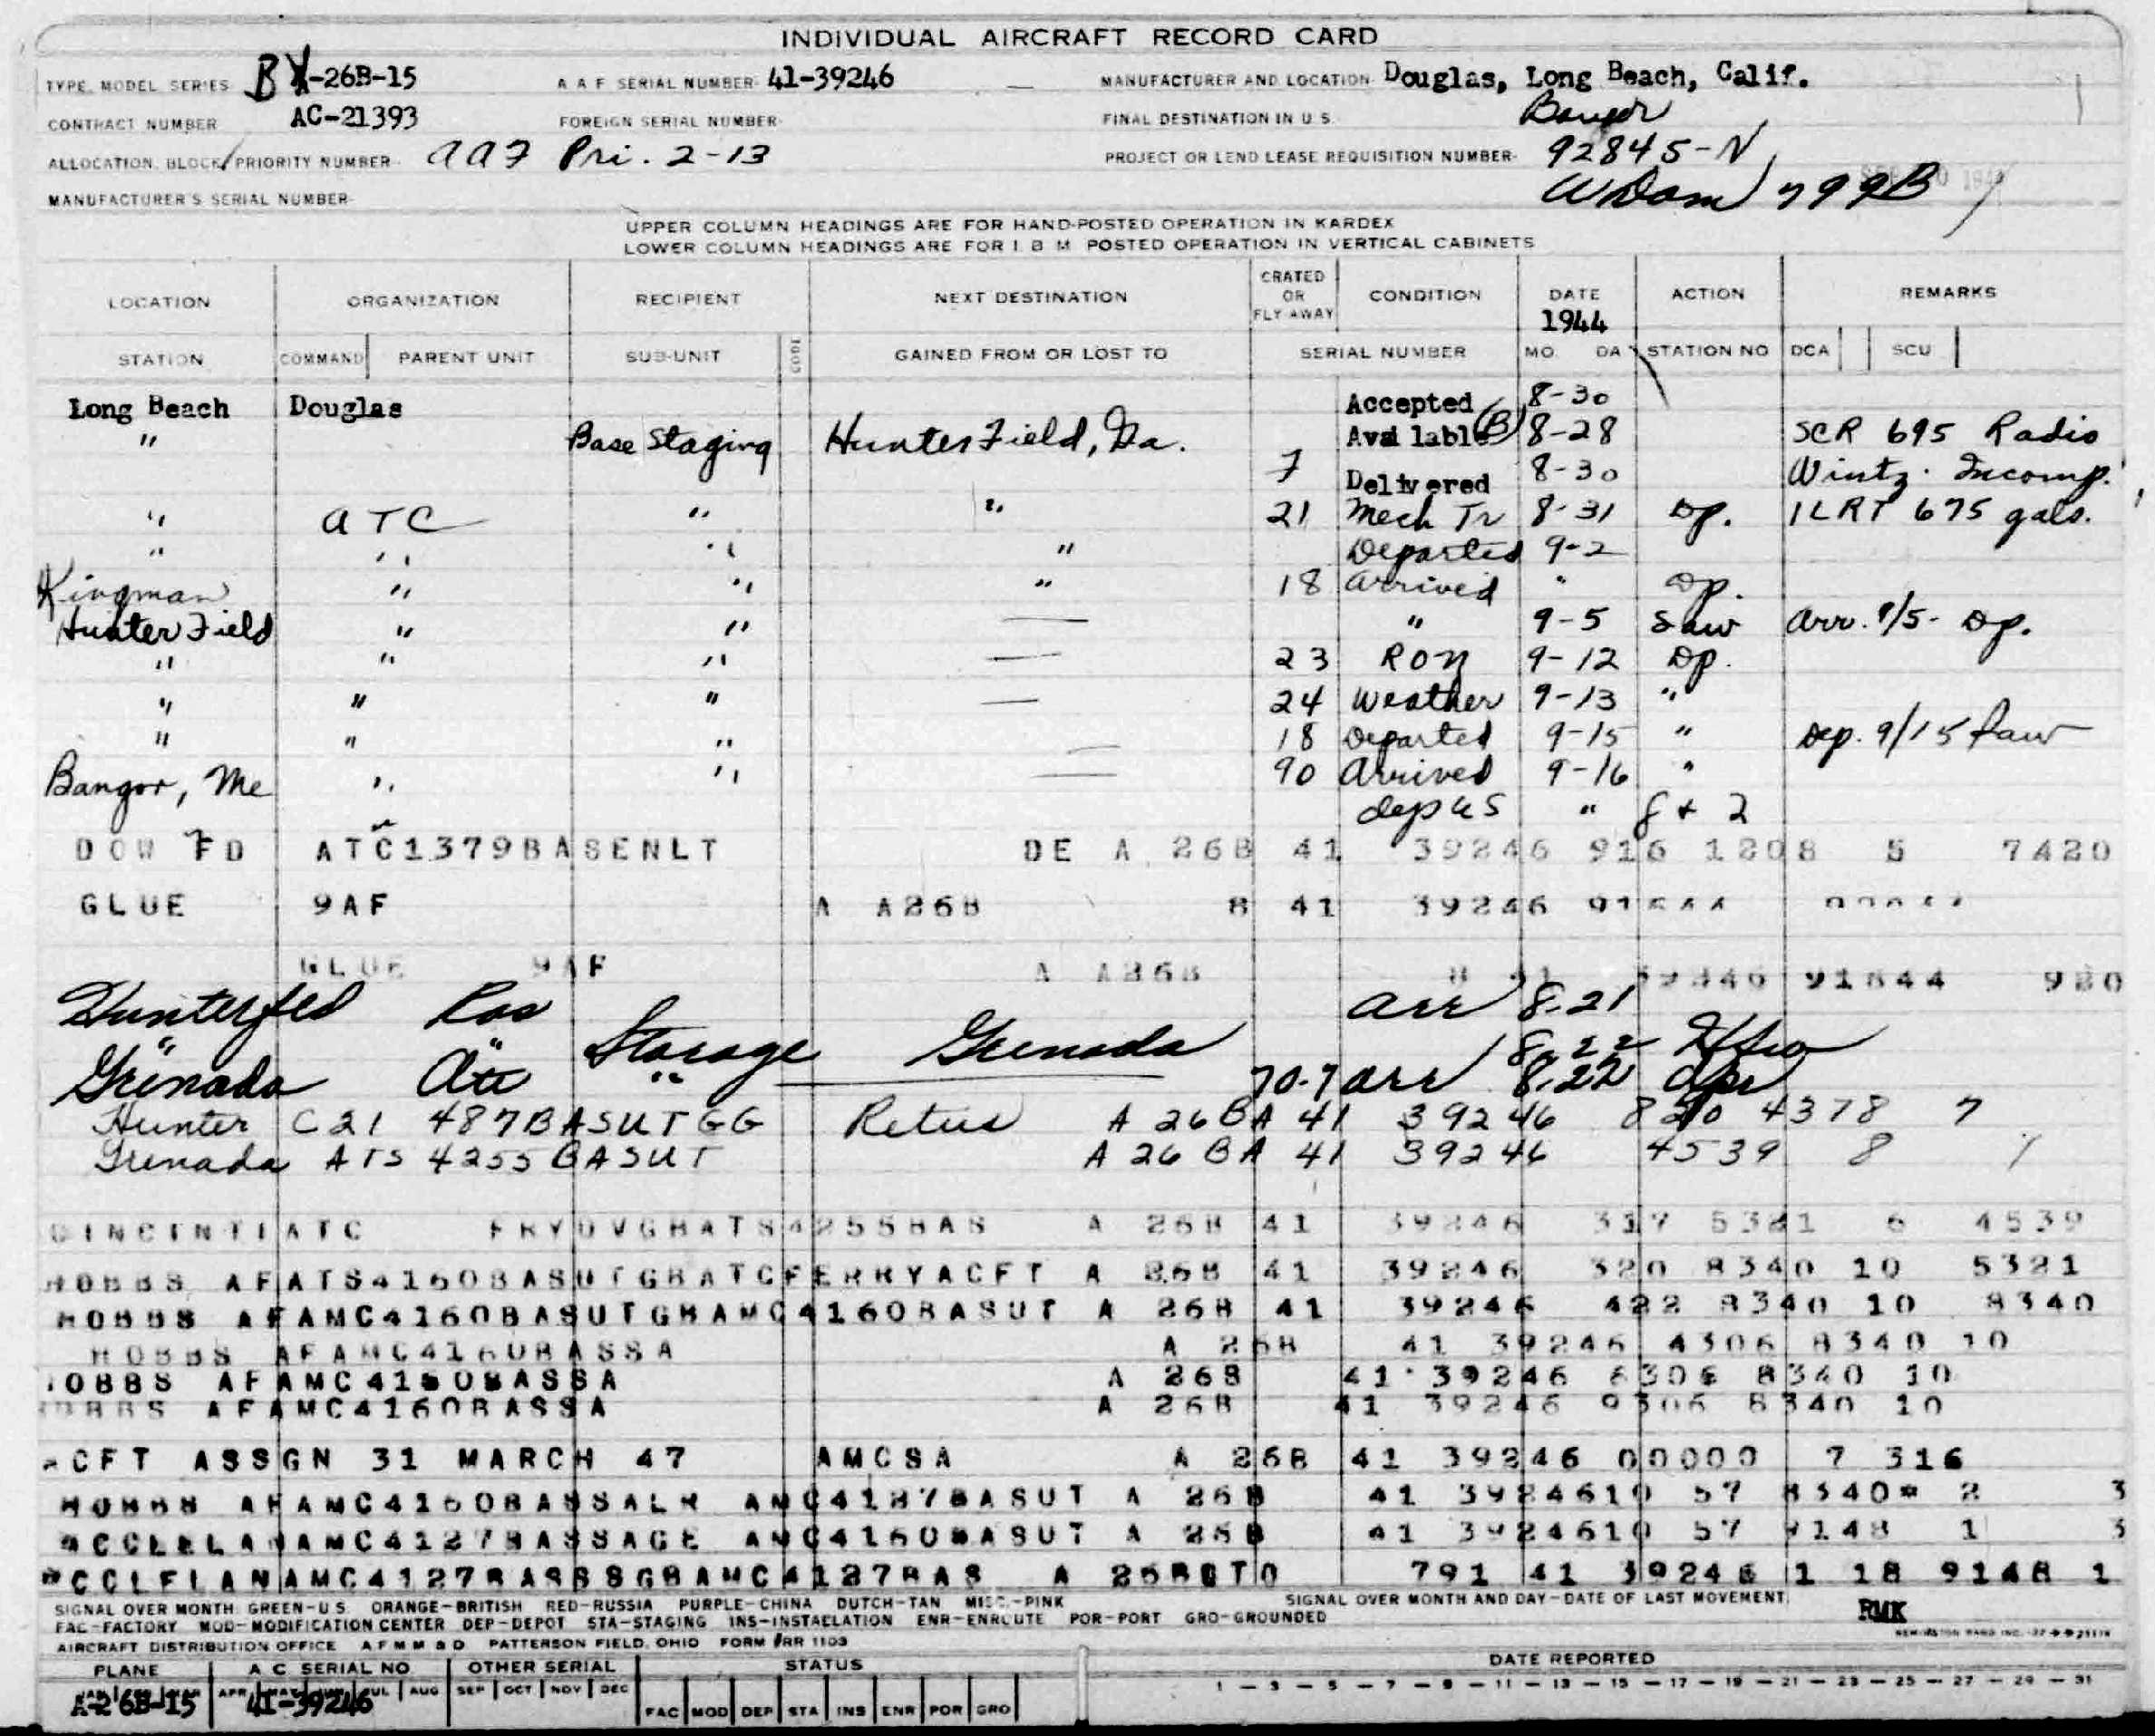 INDIVIDUAL AIRCRAFT RECORD CARD
TYPE, MODEL, SERIES B -26B-15 A A F SERIAL NUMBER 41-39246 MANUFACTURER AND LOCATION Douglas, Long Beach, Calif.
CONTRACT NUMBER AC-21393 FOREIGN SERIAL NUMBER FINAL DESTINATION IN U S Bangor
ALLOCATION, BLOCK/PRIORITY NUMBER AAF Pri. 2-13 PROJECT OR LEND LEASE REQUISITION NUMBER 92845-N
MANUFACTURER'S SERIAL NUMBER 799B
UPPER COLUMN HEADINGS ARE FOR HAND-POSTED OPERATION IN KARDEX
LOWER COLUMN HEADINGS ARE FOR I B M POSTED OPERATION IN VERTICAL CABINETS
LOCATION ORGANIZATION RECIPIENT NEXT DESTINATION CRATED OR FLY-AWAY CONDITION DATE 1944 ACTION REMARKS
STATION COMMAND PARENT UNIT SUB-UNIT GAINED FROM OR LOST TO SERIAL NUMBER MO. DA STATION NO DCA SCU
Long Beach Douglas Accepted 8-30
" Base Staging Hunter Field, Ga. Avai lable (B) 8-28 SCR 695 Radio
7 Delivered 8-30 Wintz. Incomp.
" ATC " " 21 Mech Tr 8-31 Dp. 1LRT 675 gals.
" " " " Departed 9-2
Kingman " " " 18 Arrived " Dp.
Hunter Field " " — " 9-5 Saw Arr. 9/5- Dp.
" " " — 23 RON 9-12 Dp.
" " " — 24 Weather 9-13 "
" " " — 18 Departed 9-15 " Dep. 9/15 Saw
Bangor, Me " " — 90 Arrived 9-16 "
dep US " 8 + 2
DOW FD ATC1379BASENLT DE A 26B 41 39246 916 1208 5 7420
GLUE 9AF A A26B 8 41 39246
GLUE 9AF A A26B 8 41 39246 91844 920
Hunterfld arr 8.21
" " Storage Grenada 8.22
Grenada " 70-7 arr 8.22
Hunter C21 487BASUTGG A 26BA 41 39246 820 4378 7
Grenada ATS 4255BASUT A 26BA 41 39246 4539 8
CINCINTIATC FRYDVGBATS4255BAS A 26B 41 39246 317 5321 6 4539
HOBBS AFATS4160BASUTGBATCFERRYACFT A 26B 41 39246 320 8340 10 5321
HOBBS AFAMC4160BASUTGBAMC4160BASUT A 26B 41 39246 422 8340 10 8340
HOBBS AFAMC4160BASSA A 26B 41 39246 4306 8340 10
OBBS AFAMC4160BASSA A 26B 41 39246 6306 8340 10
OBBS AFAMC4160BASSA A 26B 41 39246 9306 8340 10
ACFT ASSGN 31 MARCH 47 AMCSA A 26B 41 39246 00000 7 316
HOBBS AFAMC4160BASSALR AMC4127BASUT A 26B 41 3924610 57 8340* 2 3
MCCLELANAMC4127BASSAGE AMC4160BASUT A 26B 41 3924610 57 9148 1 3
MCCLELANAMC4127BASSSGBAMC4127BAS A 26B 791 41 39246 1 18 9148 1
SIGNAL OVER MONTH GREEN-U S ORANGE-BRITISH RED-RUSSIA PURPLE-CHINA DUTCH-TAN MISC.-PINK SIGNAL OVER MONTH AND DAY-DATE OF LAST MOVEMENT
FAC-FACTORY MOD-MODIFICATION CENTER DEP-DEPOT STA-STAGING INS-INSTALLATION ENR-ENROUTE POR-PORT GRO-GROUNDED RMK
AIRCRAFT DISTRIBUTION OFFICE A F M M & D PATTERSON FIELD, OHIO FORM #RR 1103
PLANE A C SERIAL NO OTHER SERIAL STATUS DATE REPORTED
APR JUL AUG SEP OCT NOV DEC 1 — 3 — 5 — 7 — 9 — 11 — 13 — 15 — 17 — 19 — 21 — 23 — 25 — 27 — 29 — 31
A-26B-15 41-39246 FAC MOD DEP STA INS ENR POR GRO